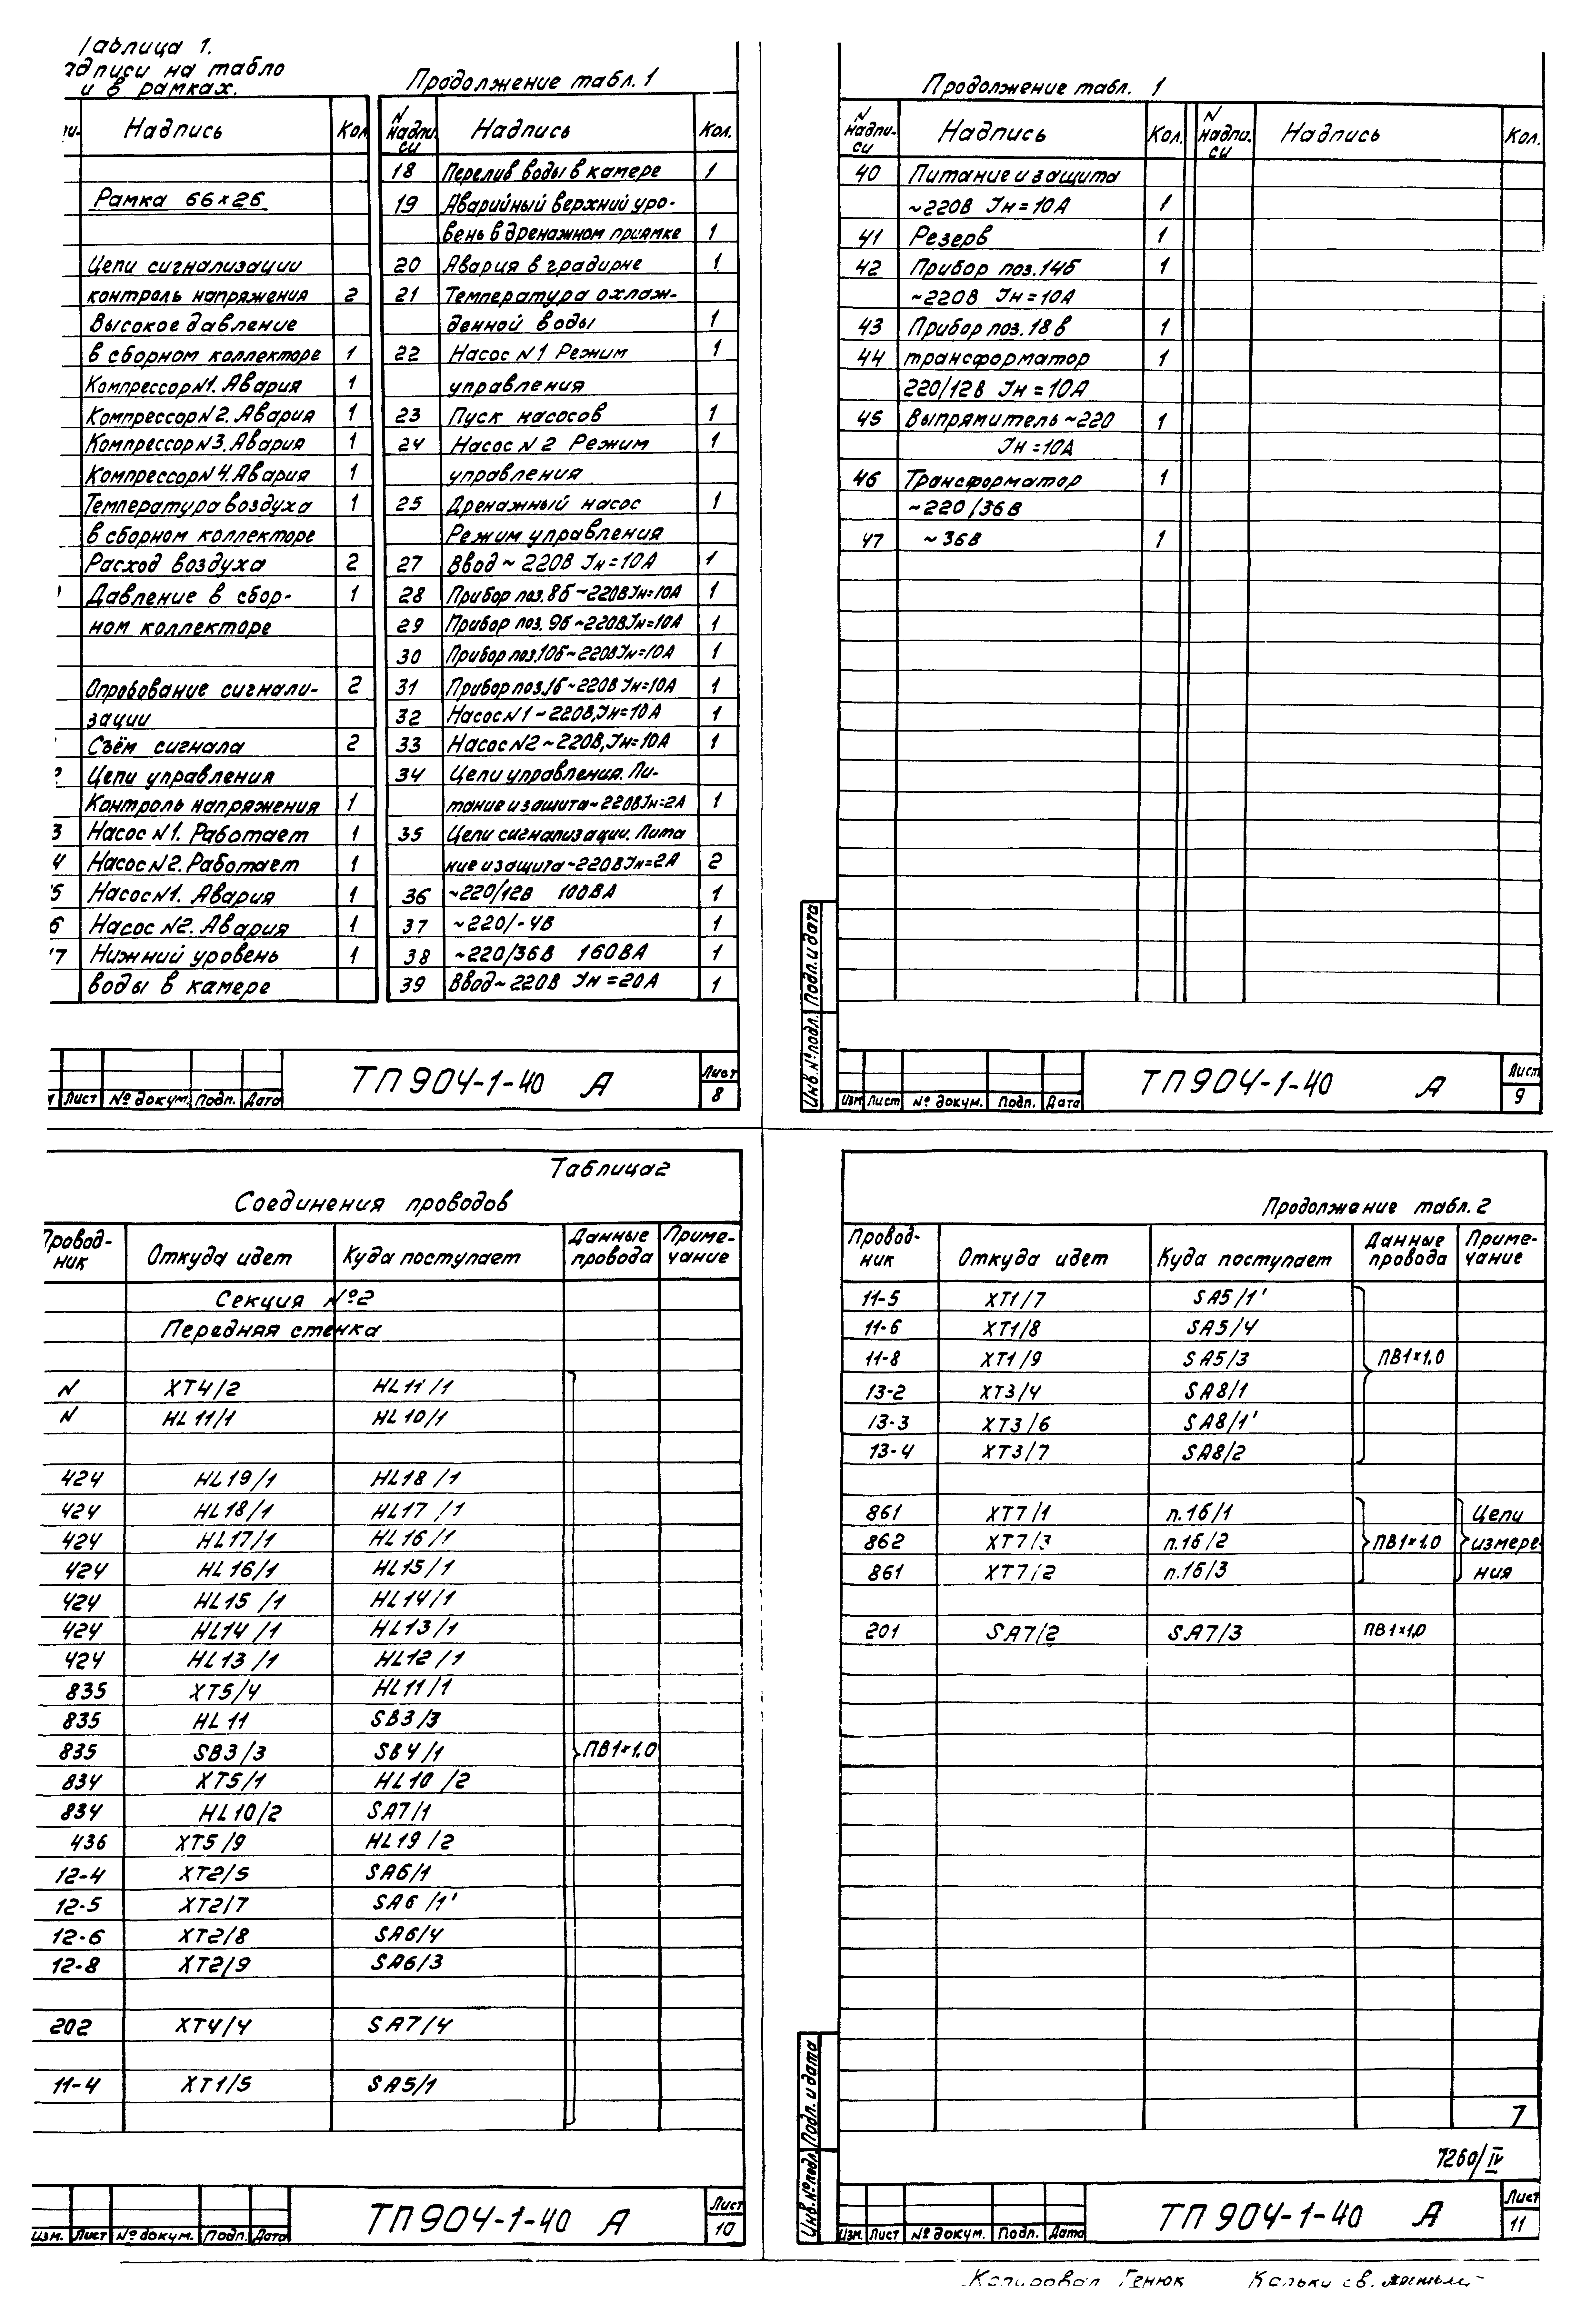 Таблица 1.
адписи на табло
и в рамках.
пи- Надпись Кол.
Рамка 66×26
Цепи сигнализации
контроль напряжения 2
Высокое давление
в сборном коллекторе 1
Компрессор N1. Авария 1
Компрессор N2. Авария 1
Компрессор N3. Авария 1
Компрессор N4. Авария 1
Температура воздуха 1
в сборном коллекторе
Расход воздуха 2
Давление в сбор- 1
ном коллекторе
Опробование сигнали- 2
зации
Съём сигнала 2
2 Цепи управления
Контроль напряжения 1
3 Насос N1. Работает 1
4 Насос N2. Работает 1
5 Насос N1. Авария 1
6 Насос N2. Авария 1
17 Нижний уровень 1
воды в камере
Продолжение табл. 1
N надпи-си Надпись Кол.
18 Перелив воды в камере 1
19 Аварийный верхний уро-
вень в дренажном приямке 1
20 Авария в градирне 1
21 Температура охлаж-
денной воды 1
22 Насос N1 Режим 1
управления
23 Пуск насосов 1
24 Насос N2 Режим 1
управления
25 Дренажный насос 1
Режим управления
27 Ввод ~ 220В Iн=10А 1
28 Прибор поз. 8б ~220В Iн=10А 1
29 Прибор поз. 9б ~220В Iн=10А 1
30 Прибор поз. 10б ~220В Iн=10А 1
31 Прибор поз. 1б ~220В Iн=10А 1
32 Насос N1 ~ 220В, Iн=10А 1
33 Насос N2 ~ 220В, Iн=10А 1
34 Цепи управления. Пи-
тание и защита ~220В Iн=2А 1
35 Цепи сигнализации. Пита
ние и защита ~220В Iн=2А 2
36 ~220/12В 100ВА 1
37 ~220/-4В 1
38 ~220/36В 160ВА 1
39 Ввод ~ 220В Iн=20А 1
Лист № докум. Подп. Дата
ТП 904-1-40 А
Лист
8
Продолжение табл. 1
N надпи-си Надпись Кол. N надпи-си Надпись Кол.
40 Питание и защита
~220В Iн=10А 1
41 Резерв 1
42 Прибор поз. 14б 1
~220В Iн=10А
43 Прибор поз. 18в 1
44 трансформатор 1
220/12В Iн=10А
45 Выпрямитель ~220 1
Iн=10А
46 Трансформатор 1
~220/36В
47 ~36В 1
Подп. и дата
Инв. № подл.
Изм Лист № докум. Подп. Дата
ТП 904-1-40 А
Лист
9
Таблица 2
Соединения проводов
Провод-ник Откуда идет Куда поступает Данные провода Приме-чание
Секция №2
Передняя стенка
N XT4/2 HL11/1
N HL11/1 HL10/1
424 HL19/1 HL18/1
424 HL18/1 HL17/1
424 HL17/1 HL16/1
424 HL16/1 HL15/1
424 HL15/1 HL14/1
424 HL14/1 HL13/1
424 HL13/1 HL12/1
835 XT5/4 HL11/1
835 HL11 SB3/3
835 SB3/3 SB4/1 ПВ1×1,0
834 XT5/1 HL10/2
834 HL10/2 SA7/1
436 XT5/9 HL19/2
12-4 XT2/5 SA6/1
12-5 XT2/7 SA6/1'
12-6 XT2/8 SA6/4
12-8 XT2/9 SA6/3
202 XT4/4 SA7/4
11-4 XT1/5 SA5/1
Изм. Лист № докум. Подп. Дата
ТП 904-1-40 А
Лист
10
Продолжение табл. 2
Провод-ник Откуда идет Куда поступает Данные провода Приме-чание
11-5 XT1/7 SA5/1'
11-6 XT1/8 SA5/4
11-8 XT1/9 SA5/3 ПВ1×1,0
13-2 XT3/4 SA8/1
13-3 XT3/6 SA8/1'
13-4 XT3/7 SA8/2
861 XT7/1 п.1б/1 Цепи
862 XT7/3 п.1б/2 ПВ1×1,0 измере-
861 XT7/2 п.1б/3 ния
201 SA7/2 SA7/3 ПВ1×1,0
7
7260/IV
Подп. и дата
Инв. № подл.
Изм. Лист № докум. Подп. Дата
ТП 904-1-40 А
Лист
11
Копировал Генюк Кальки св.